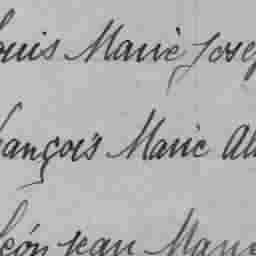 ouis Marie Josep
rançois Marie Al
Léon Jean Marie